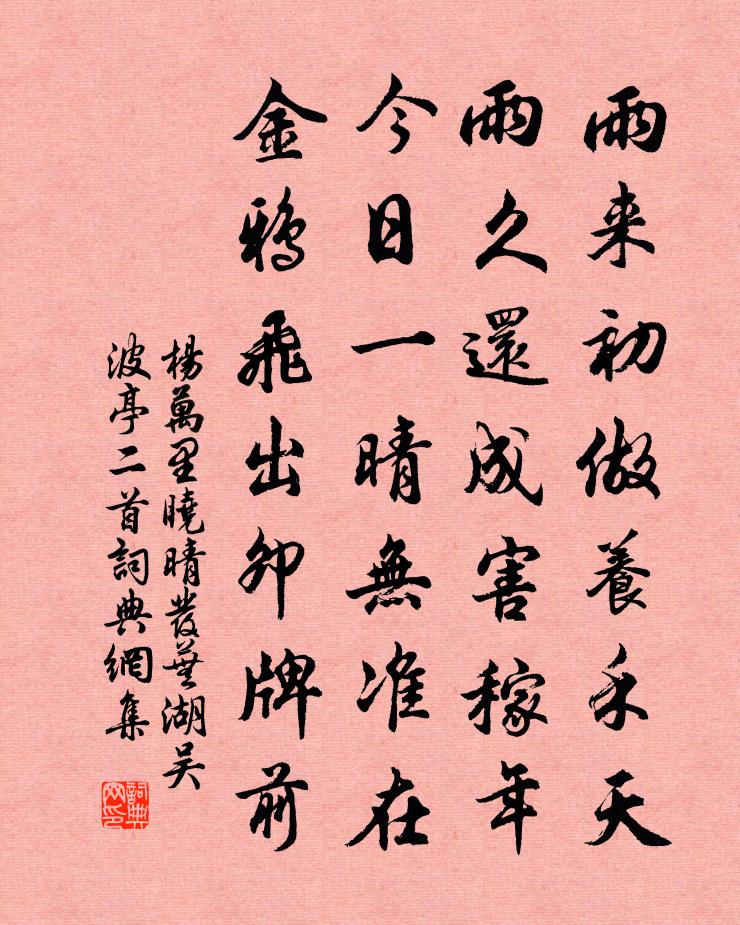 雨来初做養禾天
雨久還成害稼年
今日一晴無准在
金鴉飛出卯牌前
楊萬里曉晴發蕪湖吴
波亭二首詞典網集
詞典
网印